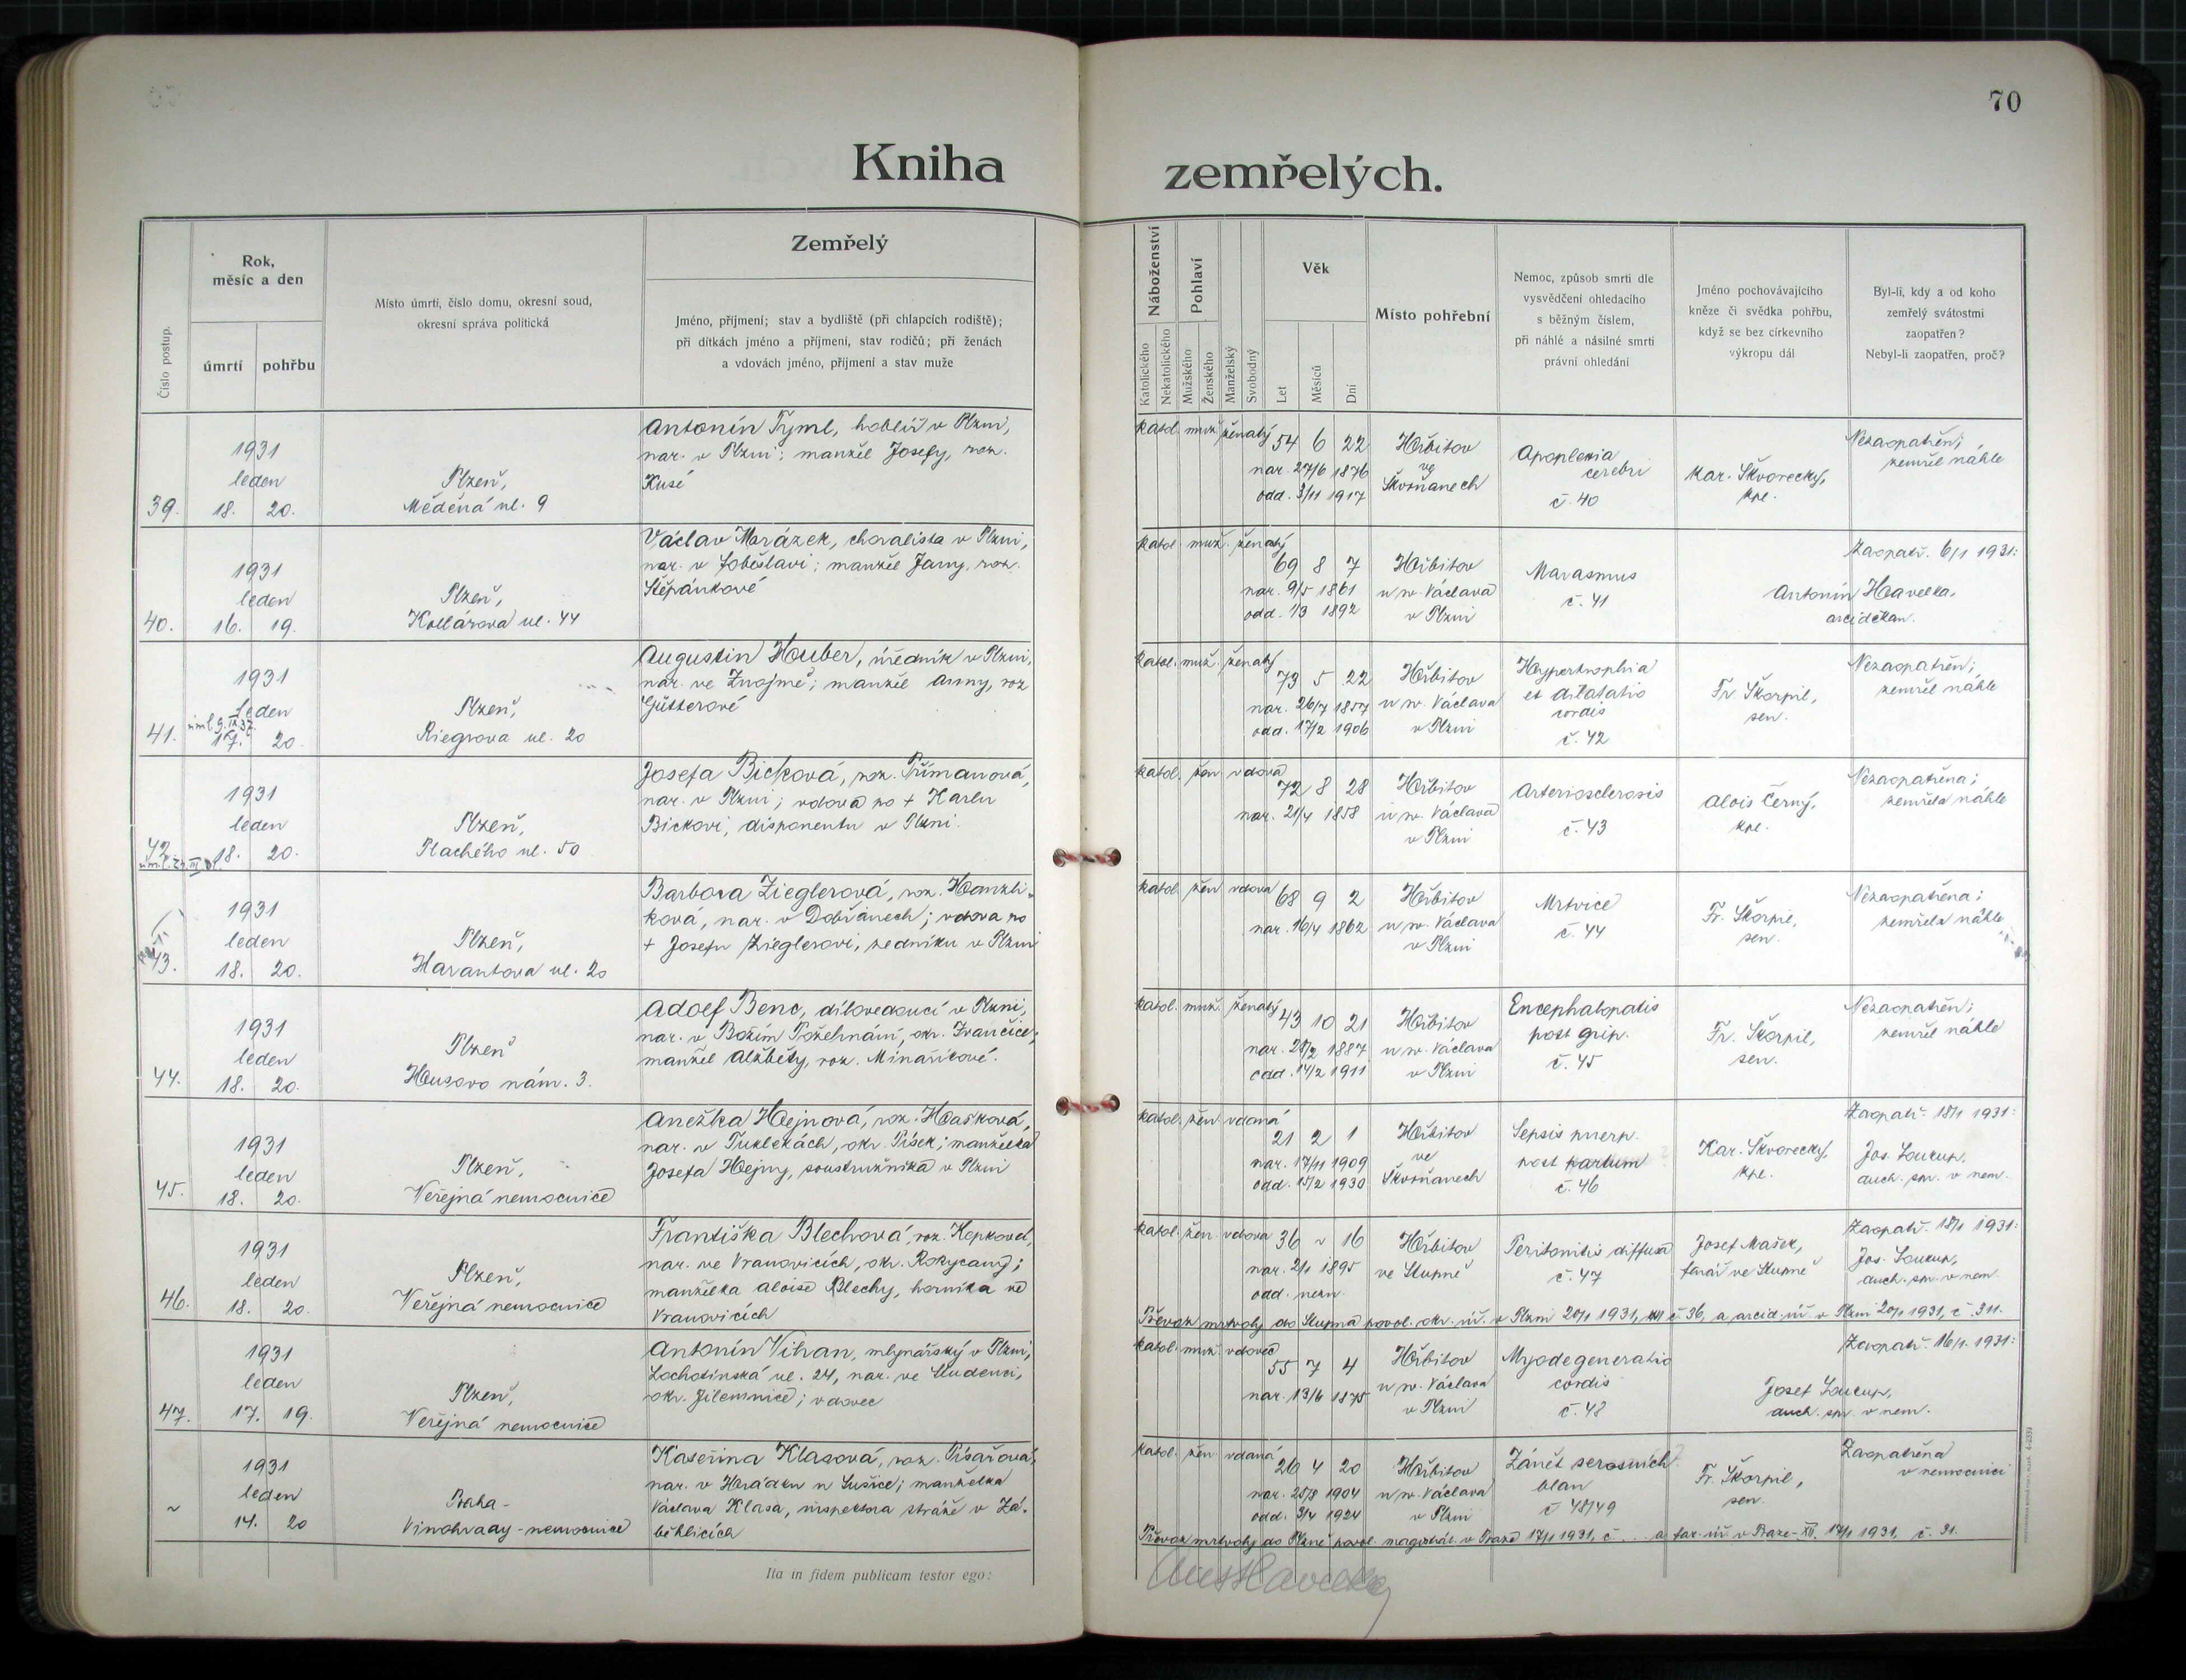 70
Kniha zemřelých.
Číslo postup.
Rok,
měsíc a den
úmrtí
pohřbu
Místo úmrtí, číslo domu, okresní soud,
okresní správa politická
Zemřelý
Jméno, příjmení; stav a bydliště (při chlapcích rodiště);
při dítkách jméno a příjmení, stav rodičů; při ženách
a vdovách jméno, příjmení a stav muže
Náboženství
Katolického
Nekatolického
Pohlaví
Mužského
Ženského
Manželský
Svobodný
Věk
Let
Měsíců
Dní
Místo pohřební
Nemoc, způsob smrti dle
vysvědčení ohledacího
s běžným číslem,
při náhlé a násilné smrti
právní ohledání
Jméno pochovávajícího
kněze či svědka pohřbu,
když se bez církevního
výkropu dál
Byl-li, kdy a od koho
zemřelý svátostmi
zaopatřen?
Nebyl-li zaopatřen, proč?
39.
1931
leden
18. 20.
Plzeň,
Měděná ul. 9
Antonín Tyml, hoblíř v Plzni,
nar. v Plzni; manžel Josefy, roz.
Kusé
katol. muž. ženatý 54 6 22
nar. 27/6 1876
odd. 3/11 1917
Hřbitov
ve
Škvrňanech
Apoplexia
cerebri
č. 40
Kar. Škvorecký,
kpl.
Nezaopatřen;
zemřel náhle
40.
1931
leden
16. 19.
Plzeň,
Kollárova ul. 44
Václav Marázek, choralista v Plzni,
nar. v Soběslavi; manžel Jany, roz.
Štěpánkové
katol. muž. ženatý
69 8 7
nar. 9/5 1861
odd. 1/3 1892
Hřbitov
u sv. Václava
v Plzni
Marasmus
č. 41
Zaopatř. 6/1 1931:
Antonín Havelka,
arciděkan.
41.
1931
leden
17. 20.
Plzeň,
Riegrova ul. 20
Augustin Houber, úředník v Plzni,
nar. ve Znojmě; manžel Anny, roz.
Gütterové
katol. muž. ženatý
73 5 22
nar. 26/7 1857
odd. 17/2 1906
Hřbitov
u sv. Václava
v Plzni
Hypertrophia
et dilatatio
cordis
č. 42
Fr. Škorpil,
sen.
Nezaopatřen;
zemřel náhle
42.
1931
leden
18. 20.
Plzeň,
Plachého ul. 50
Josefa Bicková, roz. Přímanová,
nar. v Plzni; vdova po + Karlu
Bickovi, disponentu v Plzni.
katol. žen. vdova
72 8 28
nar. 21/4 1858
Hřbitov
u sv. Václava
v Plzni
Arteriosclerosis
č. 43
Alois Černý,
kpl.
Nezaopatřena;
zemřela náhle
43.
1931
leden
18. 20.
Plzeň,
Harantova ul. 20
Barbora Zieglerová, roz. Hanzlí-
ková, nar. v Dobřanech; vdova po
+ Josefu Zieglerovi, zedníku v Plzni
katol. žen. vdova 68 9 2
nar. 16/4 1862
Hřbitov
u sv. Václava
v Plzni
Mrtvice
č. 44
Fr. Škorpil,
sen.
Nezaopatřena;
zemřela náhle
44.
1931
leden
18. 20.
Plzeň
Husovo nám. 3.
Adolf Benc, dílovedoucí v Plzni,
nar. v Božím Požehnání, okr. Ivančice;
manžel Alžběty, roz. Minaříkové.
katol. muž. ženatý 43 10 21
1887
odd. 14/2 1911
Hřbitov
u sv. Václava
v Plzni
Encephalopatis
post grip.
č. 45
Fr. Škorpil,
sen.
Nezaopatřen;
zemřel náhle
45.
1931
leden
18. 20.
Plzeň,
Veřejná nemocnice
Anežka Hejnová, roz. Hašková,
nar. v Puklekách, okr. Písek; manželka
Josefa Hejny, soustružníka v Plzni
katol. žen. vdaná
21 2 1
nar. 17/11 1909
odd. 15/2 1930
Hřbitov
ve
Škvrňanech
Sepsis puerp.
post partum
č. 46
Kar. Škvorecký,
kpl.
Zaopatř. 18/1 1931:
Jos. Soukup,
duch. spr. v nem.
46.
1931
leden
18. 20.
Plzeň,
Veřejná nemocnice
Františka Blechová, roz. Kepková,
nar. ve Vranovicích, okr. Rokycany;
manželka Aloise Blechy, horníka ve
Vranovicích
katol. žen. vdova 36 ~ 16
nar. 2/1 1895
odd. nezn.
Hřbitov
ve Stupně
Peritonitis diffusa
č. 47
Josef Mašek,
farář ve Stupně
Zaopatř. 18/1 1931:
Jos. Soukup,
duch. spr. v nem.
Převoz mrtvoly do Stupna povol. okr. úř. v Plzni 20/1 1931, č 36, a arcid. úř. v Plzni 20/1 1931, č. 311.
47.
1931
leden
17. 19.
Plzeň,
Veřejná nemocnice
Antonín Vihan, mlynářský v Plzni,
Lochotínská ul. 24, nar. ve Studenci,
okr. Jilemnice; vdovec
katol. muž. vdovec
55 7 4
nar. 13/6 1875
Hřbitov
u sv. Václava
v Plzni
Myodegeneratio
cordis
č. 48
Zaopatř. 16/1. 1931:
Josef Soukup,
duch. spr. v nem.
~
1931
leden
14. 20
Praha-
Vinohrady-nemocnice
Kateřina Klasová, roz. Písařová,
nar. v Hrádku u Sušice; manželka
Václava Klasa, inspektora stráže v Zá-
běhlicích
katol. žen. vdaná
26 4 20
nar. 25/8 1904
odd. 3/4 1924
Hřbitov
u sv. Václava
v Plzni
Zánět serosních
blan
č 48/49
Fr. Škorpil,
sen.
Zaopatřena
v nemocnici
Převoz mrtvoly do Plzně povol. magistrát v Praze 17/1 1931, č. ... a far. úř. v Praze-XII. 17/1 1931, č. 31.
Ita in fidem publicam testor ego: